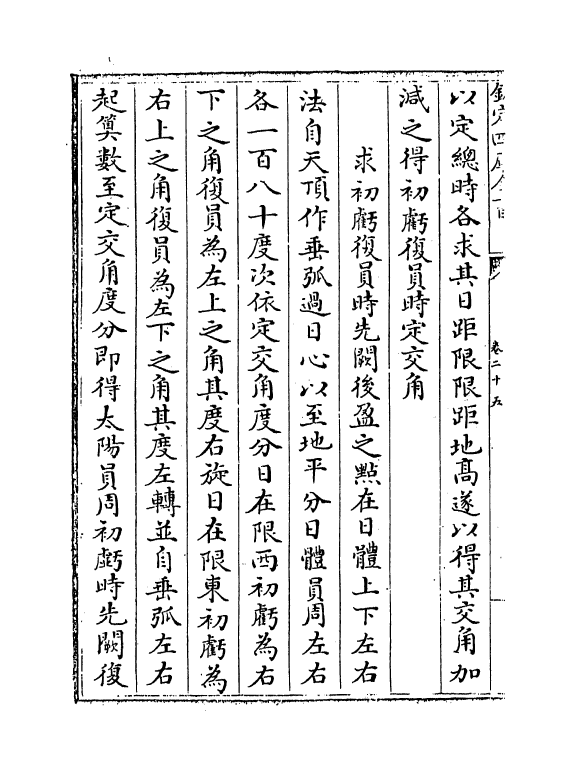 以定總時各求其日距限限距地髙遂以得其交角加
減之得初虧復員時定交角
求初虧復員時先闕後盈之㸃在日體上下左右
法自天頂作垂弧過日心以至地平分日體員周左右
各一百八十度次依定交角度分日在限西初虧為右
下之角復員為左上之角其度右旋日在限東初虧為
右上之角復員為左下之角其度左轉並自垂弧左右
起算數至定交角度分即得太陽員周初虧時先闕復
卷二十五